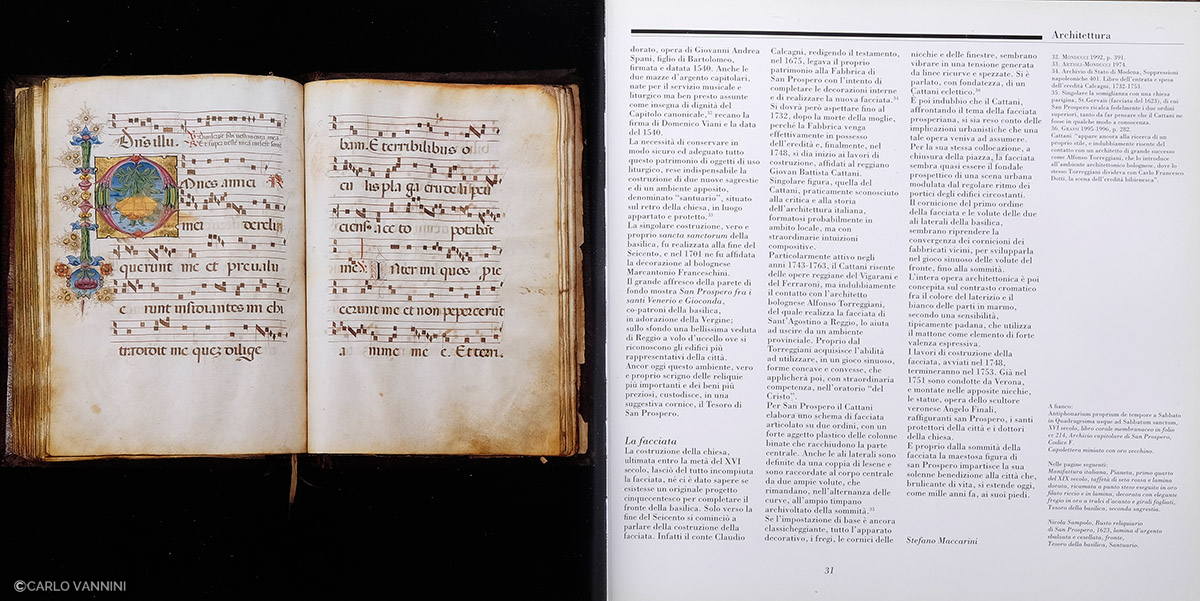 Dñs illu.
mei dereliq
querunt me et prevalu
erunt insidiantes mihi
tradidit me quem dilige
bam. Et terribilibus o
cu lis pla ga crudeli percu
cientes aceto potabat
me. Inter iniquos pro
iecerunt me et non pepercerunt
a nime me e. Et terri.
©CARLO VANNINI
Architettura
dorato, opera di Giovanni Andrea
Spani, figlio di Bartolomeo,
firmata e datata 1540. Anche le
due mazze d'argento capitolari,
nate per il servizio musicale e
liturgico ma ben presto assunte
come insegna di dignità del
Capitolo canonicale,³² recano la
firma di Domenico Viani e la data
del 1540.
La necessità di conservare in
modo sicuro ed adeguato tutto
questo patrimonio di oggetti di uso
liturgico, rese indispensabile la
costruzione di due nuove sagrestie
e di un ambiente apposito,
denominato "santuario", situato
sul retro della chiesa, in luogo
appartato e protetto.³³
La singolare costruzione, vero e
proprio sancta sanctorum della
basilica, fu realizzata alla fine del
Seicento, e nel 1701 ne fu affidata
la decorazione al bolognese
Marcantonio Franceschini.
Il grande affresco della parete di
fondo mostra San Prospero fra i
santi Venerio e Gioconda,
co-patroni della basilica,
in adorazione della Vergine;
sullo sfondo una bellissima veduta
di Reggio a volo d'uccello ove si
riconoscono gli edifici più
rappresentativi della città.
Ancor oggi questo ambiente, vero
e proprio scrigno delle reliquie
più importanti e dei beni più
preziosi, custodisce, in una
suggestiva cornice, il Tesoro di
San Prospero.
La facciata
La costruzione della chiesa,
ultimata entro la metà del XVI
secolo, lasciò del tutto incompiuta
la facciata, né ci è dato sapere se
esistesse un originale progetto
cinquecentesco per completare il
fronte della basilica. Solo verso la
fine del Seicento si cominciò a
parlare della costruzione della
facciata. Infatti il conte Claudio
Calcagni, redigendo il testamento,
nel 1675, legava il proprio
patrimonio alla Fabbrica di
San Prospero con l'intento di
completare le decorazioni interne
e di realizzare la nuova facciata.³⁴
Si dovrà però aspettare fino al
1732, dopo la morte della moglie,
perché la Fabbrica venga
effettivamente in possesso
dell'eredità e, finalmente, nel
1748, si dia inizio ai lavori di
costruzione, affidati al reggiano
Giovan Battista Cattani.
Singolare figura, quella del
Cattani, praticamente sconosciuto
alla critica e alla storia
dell'architettura italiana,
formatosi probabilmente in
ambito locale, ma con
straordinarie intuizioni
compositive.
Particolarmente attivo negli
anni 1743-1763, il Cattani risente
delle opere reggiane del Vigarani e
del Ferraroni, ma indubbiamente
il contatto con l'architetto
bolognese Alfonso Torreggiani,
del quale realizza la facciata di
Sant'Agostino a Reggio, lo aiuta
ad uscire da un ambiente
provinciale. Proprio dal
Torreggiani acquisisce l'abilità
ad utilizzare, in un gioco sinuoso,
forme concave e convesse, che
applicherà poi, con straordinaria
competenza, nell'oratorio "del
Cristo".
Per San Prospero il Cattani
elabora uno schema di facciata
articolato su due ordini, con un
forte aggetto plastico delle colonne
binate che racchiudono la parte
centrale. Anche le ali laterali sono
definite da una coppia di lesene e
sono raccordate al corpo centrale
da due ampie volute, che
rimandano, nell'alternanza delle
curve, all'ampio timpano
archivoltato della sommità.³⁵
Se l'impostazione di base è ancora
classicheggiante, tutto l'apparato
decorativo, i fregi, le cornici delle
nicchie e delle finestre, sembrano
vibrare in una tensione generata
da linee ricurve e spezzate. Si è
parlato, con fondatezza, di un
Cattani eclettico.³⁶
È poi indubbio che il Cattani,
affrontando il tema della facciata
prosperiana, si sia reso conto delle
implicazioni urbanistiche che una
tale opera veniva ad assumere.
Per la sua stessa collocazione, a
chiusura della piazza, la facciata
sembra quasi essere il fondale
prospettico di una scena urbana
modulata dal regolare ritmo dei
portici degli edifici circostanti.
Il cornicione del primo ordine
della facciata e le volute delle due
ali laterali della basilica,
sembrano riprendere la
convergenza dei cornicioni dei
fabbricati vicini, per svilupparla
nel gioco sinuoso delle volute del
fronte, fino alla sommità.
L'intera opera architettonica è poi
concepita sul contrasto cromatico
fra il colore del laterizio e il
bianco delle parti in marmo,
secondo una sensibilità,
tipicamente padana, che utilizza
il mattone come elemento di forte
valenza espressiva.
I lavori di costruzione della
facciata, avviati nel 1748,
termineranno nel 1753. Già nel
1751 sono condotte da Verona,
e montate nelle apposite nicchie,
le statue, opera dello scultore
veronese Angelo Finali,
raffiguranti san Prospero, i santi
protettori della città e i dottori
della chiesa.
E proprio dalla sommità della
facciata la maestosa figura di
san Prospero impartisce la sua
solenne benedizione alla città che,
brulicante di vita, si estende oggi,
come mille anni fa, ai suoi piedi.
Stefano Maccarini
32. MONDUCCI 1992, p. 391.
33. ARTIOLI-MONDUCCI 1974.
34. Archivio di Stato di Modena, Soppressioni
napoleoniche 401. Libro dell'entrata e spesa
dell'eredità Calcagni, 1732-1753.
35. Singolare la somiglianza con una chiesa
parigina, St. Gervais (facciata del 1623), di cui
San Prospero ricalca fedelmente i due ordini
superiori, tanto da far pensare che il Cattani ne
fosse in qualche modo a conoscenza.
36. GRASSI 1995-1996, p. 282.
Cattani "appare ancora alla ricerca di un
proprio stile, e indubbiamente risente del
contatto con un architetto di grande successo
come Alfonso Torreggiani, che lo introduce
all'ambiente architettonico bolognese, dove lo
stesso Torreggiani divideva con Carlo Francesco
Dotti, la scena dell'eredità bibienesca".
A fianco:
Antiphonarium proprium de tempore a Sabbato
in Quadragesima usque ad Sabbatum sanctum,
XVI secolo, libro corale membranaceo in folio
cc 214, Archivio capitolare di San Prospero,
Codice F.
Capolettera miniato con oro zecchino.
Nelle pagine seguenti:
Manifattura italiana, Pianeta, primo quarto
del XIX secolo, taffetà di seta rossa e lamina
dorata, ricamata a punto steso eseguito in oro
filato riccio e in lamina, decorata con elegante
fregio in oro a tralci d'acanto e girali fogliati,
Tesoro della basilica, seconda sagrestia.
Nicola Sampolo, Busto reliquiario
di San Prospero, 1623, lamina d'argento
sbalzata e cesellata, fronte,
Tesoro della basilica, Santuario.
31